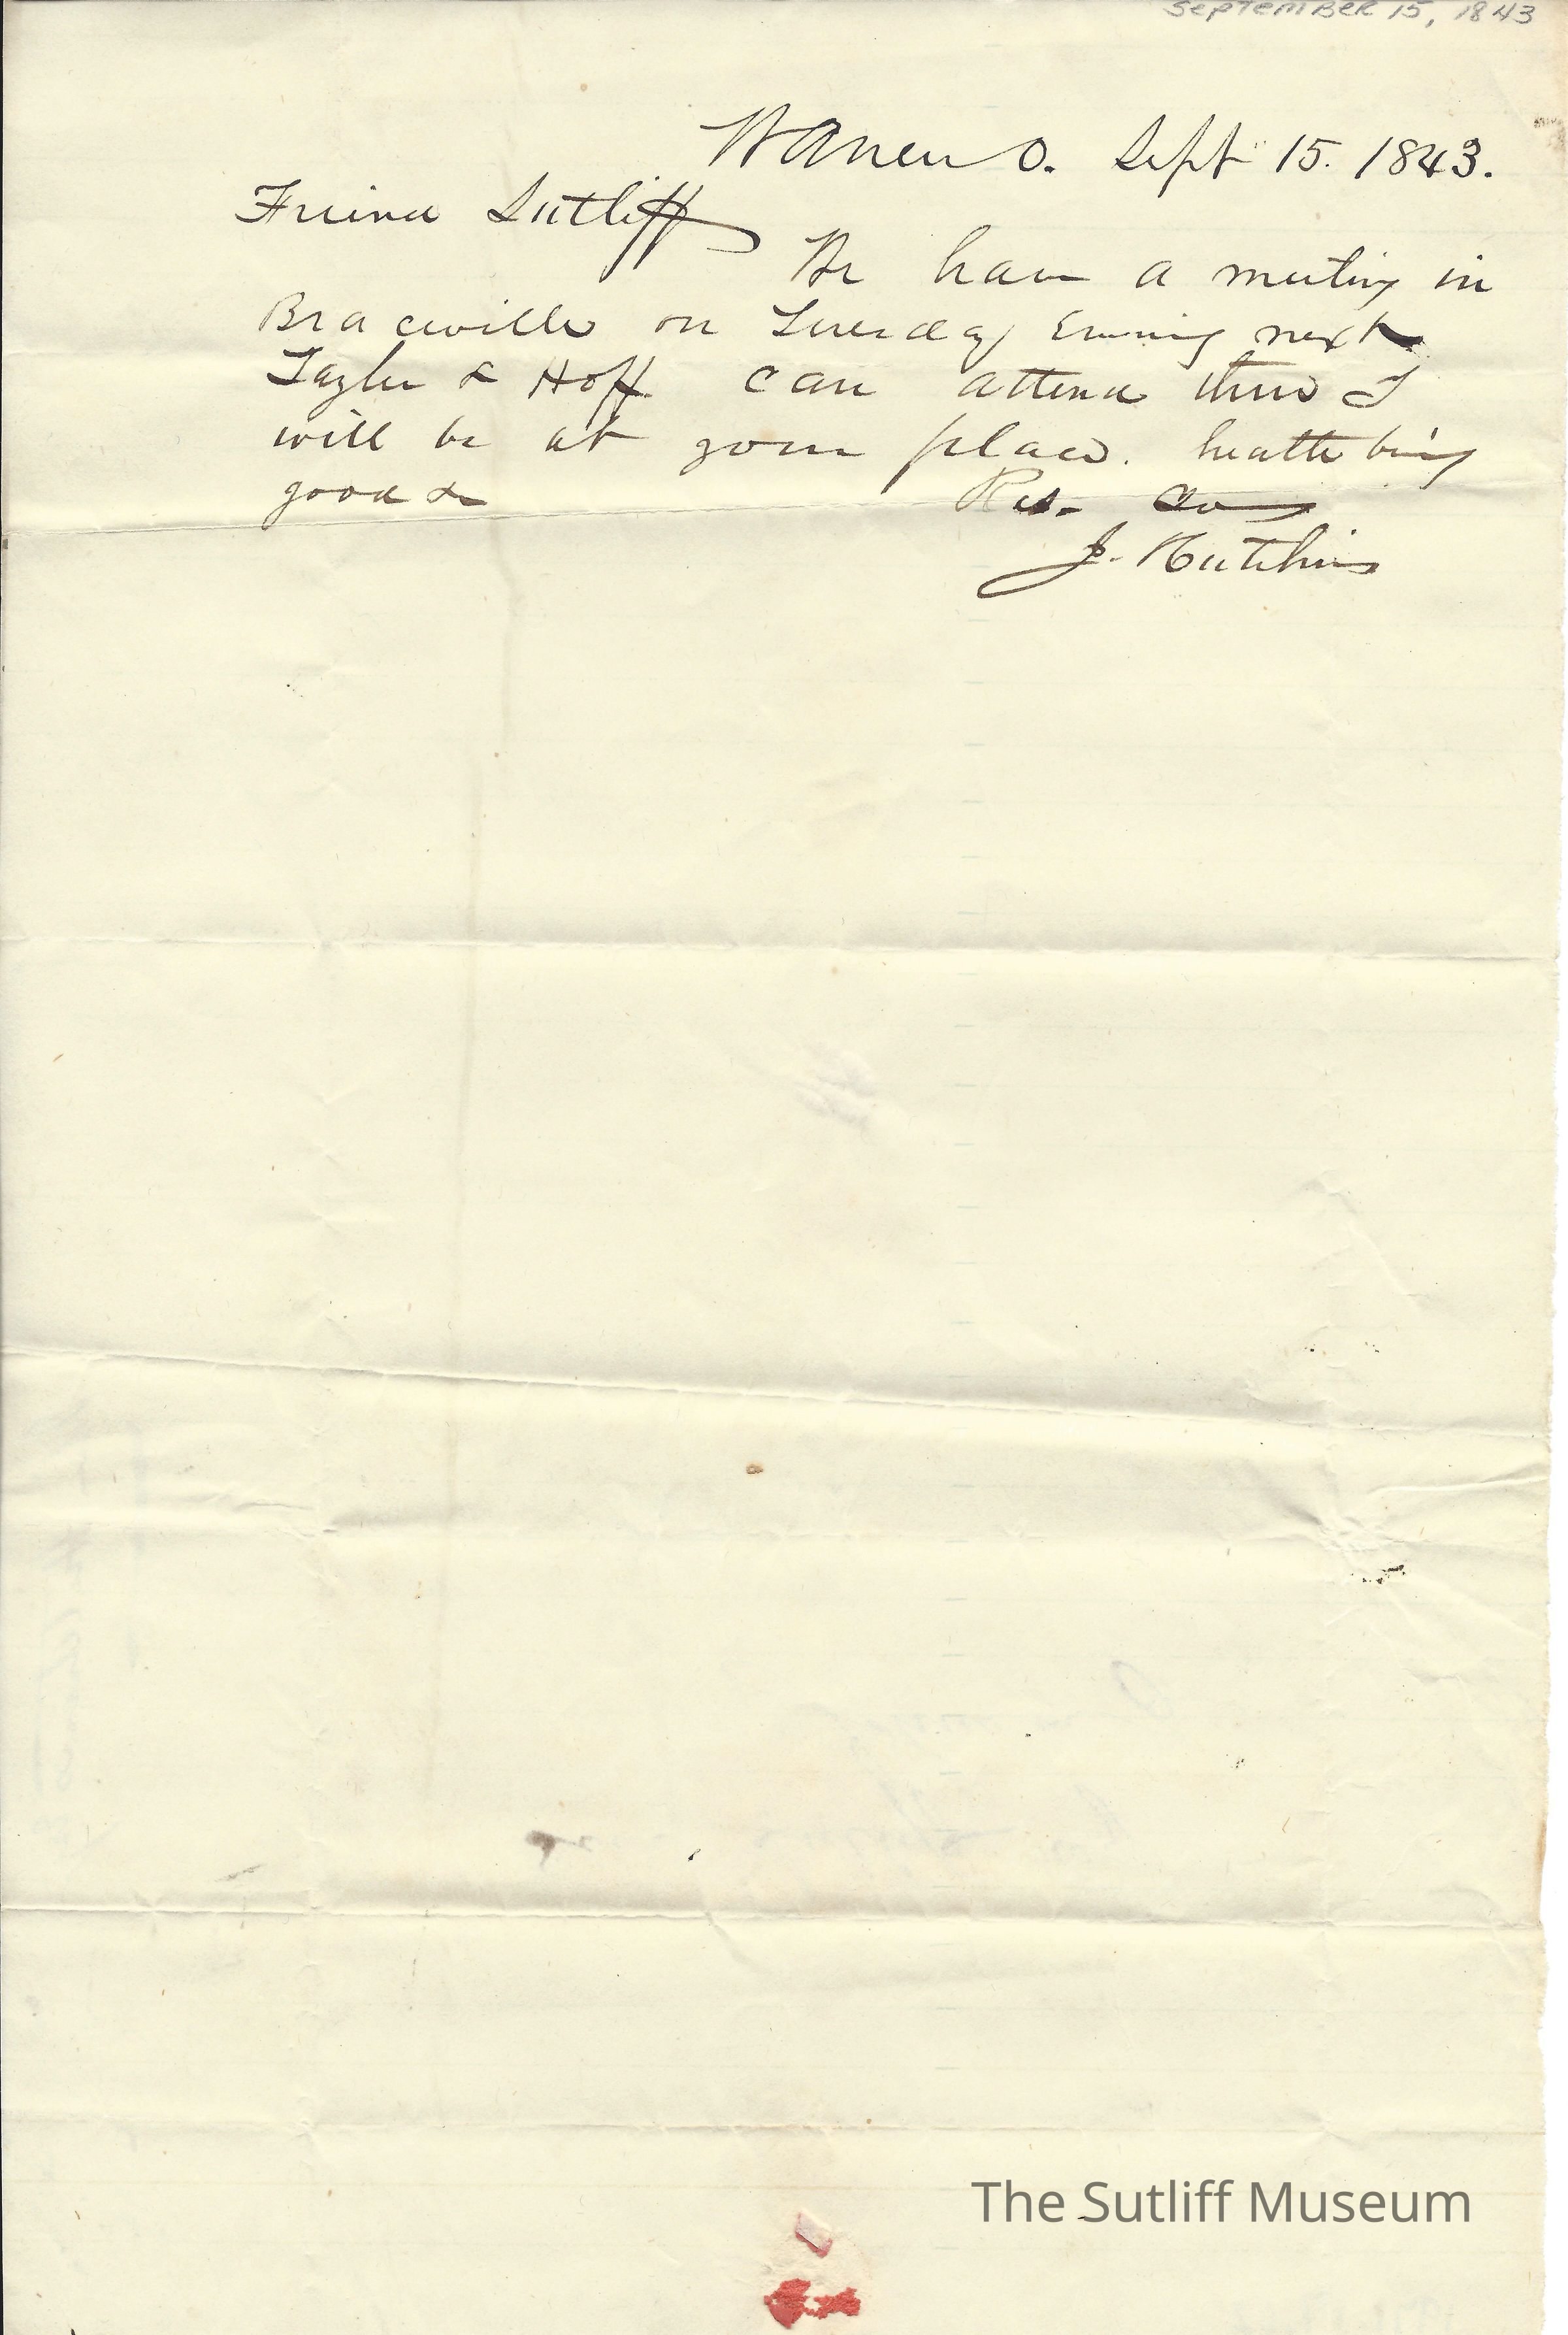 September 15, 1843
Warren O. Sept 15. 1843.
Friend Sutliff
We have a meeting in
Braceville on Tuesday Evening next
Tayler & Hoff can attend there I
will be at your place. health being
good &
Res. Yours
J. Hutchins
The Sutliff Museum